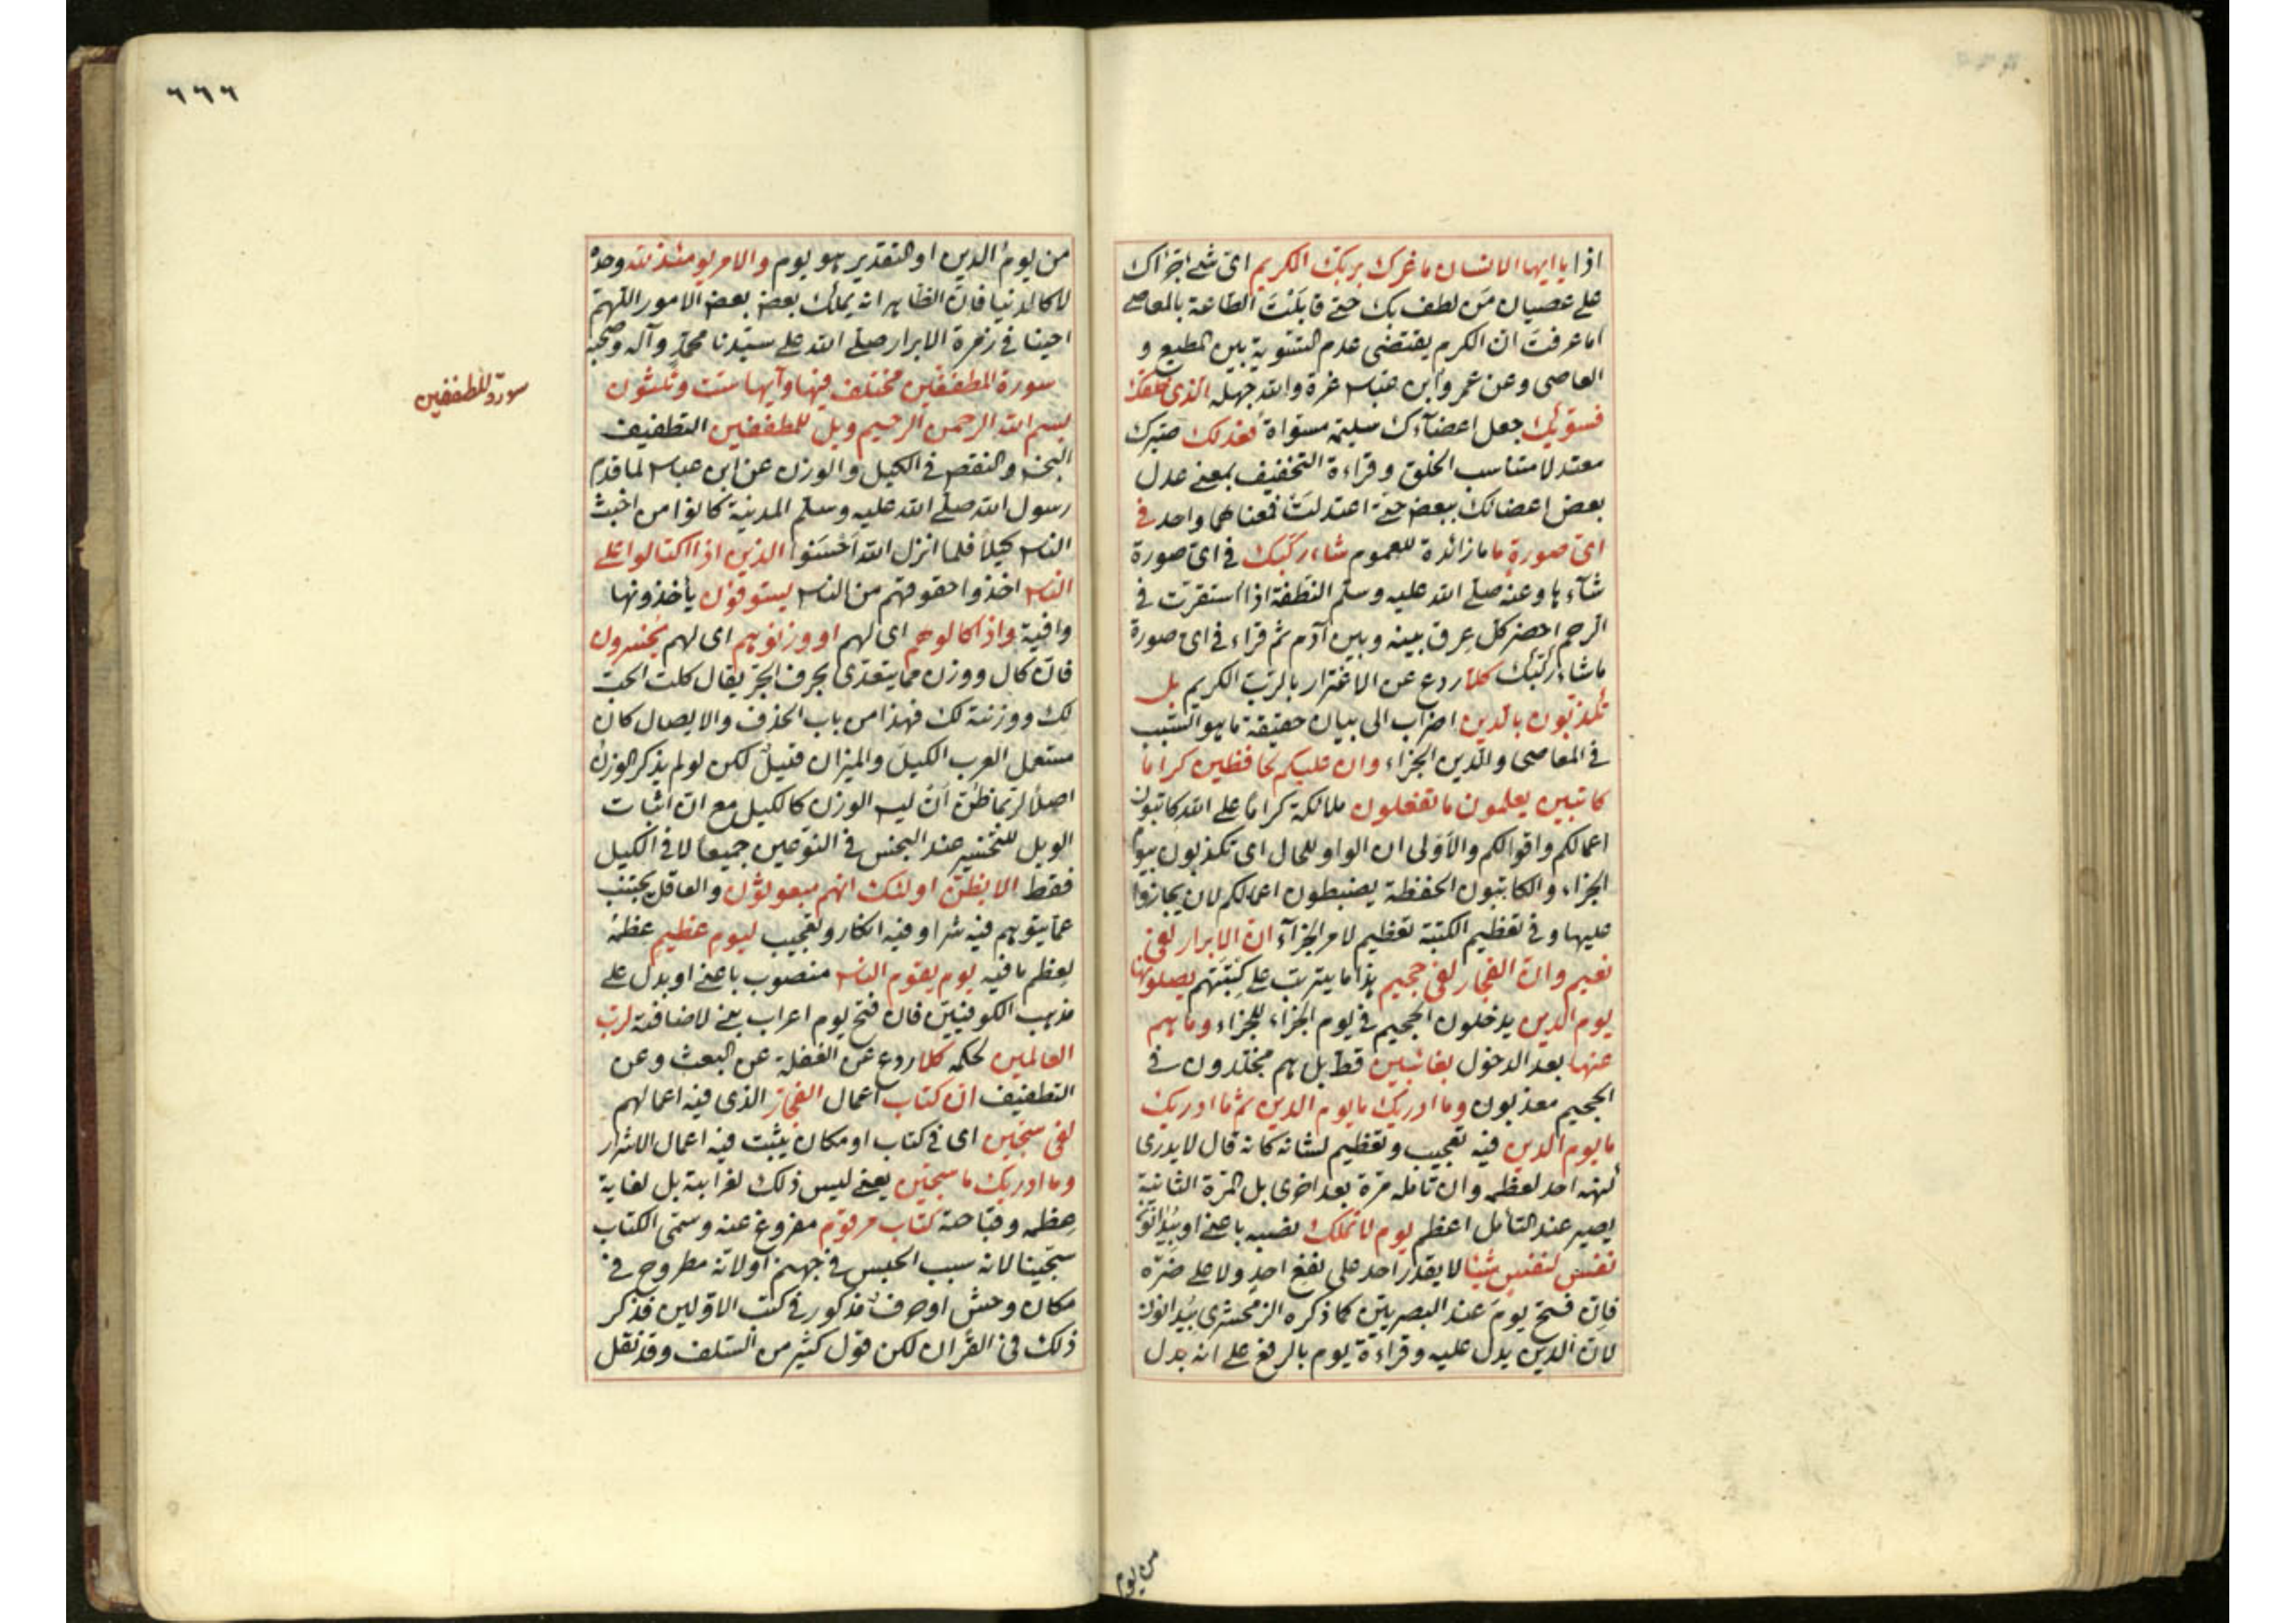 اذا يا ايها الانسان ما غرك بربك الكريم اى شئ اجرأك
على عصيان من لطف بك حتى قابلت الطاعة بالمعاصى
اما عرفت ان الكرم يقتضى عدم التسوية بين المطيع و
العاصى وعن عمر وابن عباس غرة والله جهله الذى خلقك
فسويك جعل اعضآءك سليمة مسواة فعدلك صيرك
معتدلا متناسب الخلق وقراءة التخفيف بمعنى عدل
بعض اعضائك ببعض حتى اعتدلت فمعناهما واحد فى
اى صورة ما ما زائدة للعموم شاء ركبك فى اى صورة
شآءها وعنه صلى الله عليه وسلم النطفة اذا استقرت فى
الرحم احضر كل عرق بينه وبين آدم ثم قراء فى اى صورة
ما شاء ركبك كلا ردع عن الاغترار بالرب الكريم بل
تكذبون بالدين اضراب الى بيان حقيقة ما هو السبب
فى المعاصى والدين الجزاء وان عليكم لحافظين كراما
كاتبين يعلمون ما تفعلون ملائكة كراما على الله كاتبون
اعمالكم واقوالكم والاولى ان الواو للحال اى تكذبون بيوم
الجزاء والكاتبون الحفظة يضبطون اعمالكم لان يجازوا
عليها وفى تعظيم الكتبة تعظيم لامر الجزآء ان الابرار لفى
نعيم وان الفجار لفى جحيم هذا ما يترتب على كتبتهم يصلونها
يوم الدين يدخلون الجحيم فى يوم الجزاء للجزاء وما هم
عنها بعد الدخول بغائبين قط بل هم مخلدون فى
الجحيم معذبون وما ادريك ما يوم الدين ثم ما ادريك
ما يوم الدين فيه تعجيب وتعظيم لشانه كانه قال لا يدرى
كنهه احد لعظمه وان تامله مرة بعد اخرى بل المرة الثانية
يصير عند التأمل اعظم يوم لا تملك نصبه باعنى او
نفس لنفس شيئا لا يقدر احد على نفع احد ولا على ضره
فان فتح يوم عند البصريين كما ذكره الزمخشرى
لان الدين يدل عليه وقراءة يوم بالرفع على انه بدل
من يوم
٦٦٦
من يوم الدين او التقدير هو يوم والامر يومئذ لله وحده
لا كالدنيا فان الظاهر انه يملك بعض بعض الامور اللهم
احينا فى زمرة الابرار صلى الله على سيدنا محمد وآله وصحبه
سورة المطففين مختلف فيها وآيها ست وثلثون
سورة المطففين
بسم الله الرحمن الرحيم ويل للمطففين التطفيف
البخس والنقص فى الكيل والوزن عن ابن عباس لما قدم
رسول الله صلى الله عليه وسلم المدينة كانوا من اخبث
الناس كيلا فلما انزل الله احسنوا الذين اذا اكتالوا على
الناس اخذوا حقوقهم من الناس يستوفون يأخذونها
وافية واذا كالوهم اى لهم او وزنوهم اى لهم يخسرون
فان كال ووزن مما يتعدى بحرف الجر يقال كلت الحب
لك ووزنته لك فهذا من باب الحذف والايصال كان
مستعمل العرب الكيل والميزان قليل لكن لو لم يذكر الوزن
اصلا لربما ظن ان ليس الوزن كالكيل مع ان اثبات
الويل للخسر عند البخس فى النوعين جميعا لا فى الكيل
فقط الا يظن اولئك انهم مبعوثون والعاقل يجتنب
عما يتوهم فيه شرا وفيه انكار وتعجيب ليوم عظيم عظمه
لعظم ما فيه يوم يقوم الناس منصوب باعنى او بدل على
مذهب الكوفيين فان فتح يوم اعراب يعنى لاضافته لرب
العالمين لحكمه كلا ردع عن الغفلة عن البعث وعن
التطفيف ان كتاب اعمال الفجار الذى فيه اعمالهم
لفى سجين اى فى كتاب او مكان يثبت فيه اعمال الاشرار
وما ادريك ما سجين يعنى ليس ذلك لغرابته بل لغاية
عظمه وقباحته كتاب مرقوم مفروغ عنه وسمى الكتاب
سجينا لانه سبب الحبس فى جهنم او لانه مطروح فى
مكان وحش او مذكور فى كتب الاولين فذكر
ذلك فى القرآن لكن قول كثير من السلف وقد نقل